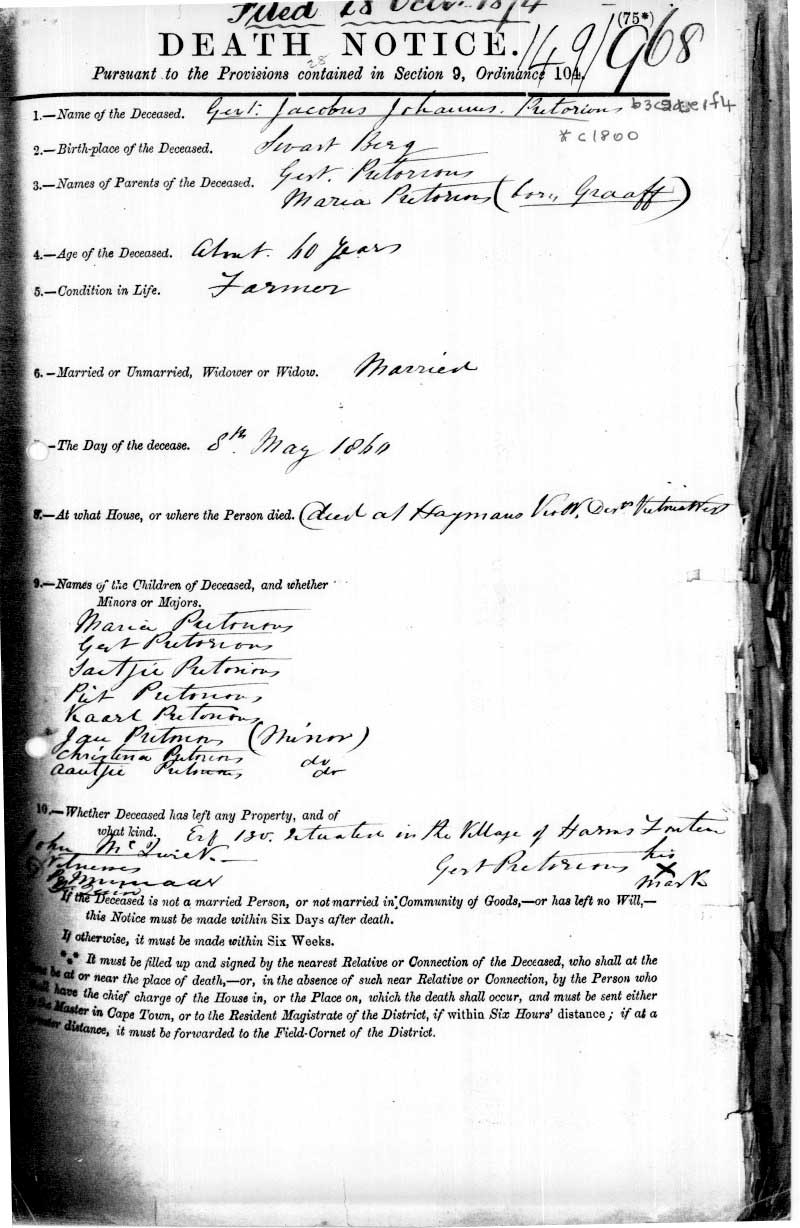 Filed 28 Oct. 1874
(75*)
DEATH NOTICE.
149/968
28
Pursuant to the Provisions contained in Section 9, Ordinance 104.
1.—Name of the Deceased. Gert Jacobus Johannes Pretorious b3c2 e1f4
* c1800
2.—Birth-place of the Deceased. Swart Berg
3.—Names of Parents of the Deceased. Gert. Pretorious
Maria Pretorious (born Graaff)
4.—Age of the Deceased. About 60 years
5.—Condition in Life. Farmer
6.—Married or Unmarried, Widower or Widow. Married
—The Day of the decease. 8th May 1860
8.—At what House, or where the Person died. (died at Haymans
9.—Names of the Children of Deceased, and whether
Minors or Majors.
Maria Pretorious
Gert Pretorious
Saetjie Pretorious
Piet Pretorious
Kaarl Pretorious
Jan Pretorious (Minor)
Christina Pretorious do
Aautjie Pretorious do
10.—Whether Deceased has left any Property, and of
what kind. Erf 130. situated in the Village of Harms Fontein
John Mc
Witnesses
Gert Pretorious his
X
mark
If the Deceased is not a married Person, or not married in Community of Goods,—or has left no Will,—
this Notice must be made within Six Days after death.
If otherwise, it must be made within Six Weeks.
*** It must be filled up and signed by the nearest Relative or Connection of the Deceased, who shall at the
time be at or near the place of death,—or, in the absence of such near Relative or Connection, by the Person who
shall have the chief charge of the House in, or the Place on, which the death shall occur, and must be sent either
to the Master in Cape Town, or to the Resident Magistrate of the District, if within Six Hours' distance; if at a
distance, it must be forwarded to the Field-Cornet of the District.